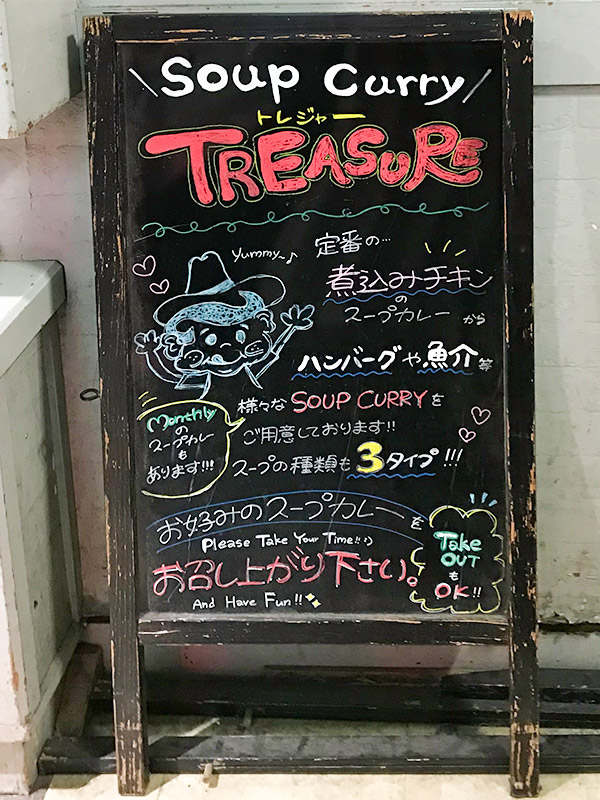 \ Soup Curry /
トレジャー
TREASURE
Yummy~♪
定番の…
煮込みチキン
の
スープカレー から
ハンバーグや魚介 等
様々な SOUP CURRYを
ご用意しております!!
スープの種類も 3タイプ!!!
Monthly
の
スープカレー
も
あります!!!
お好みのスープカレーを
Please Take Your Time!! :)
お召し上がり下さい。
And Have Fun!!
Take
OUT
も
OK!!